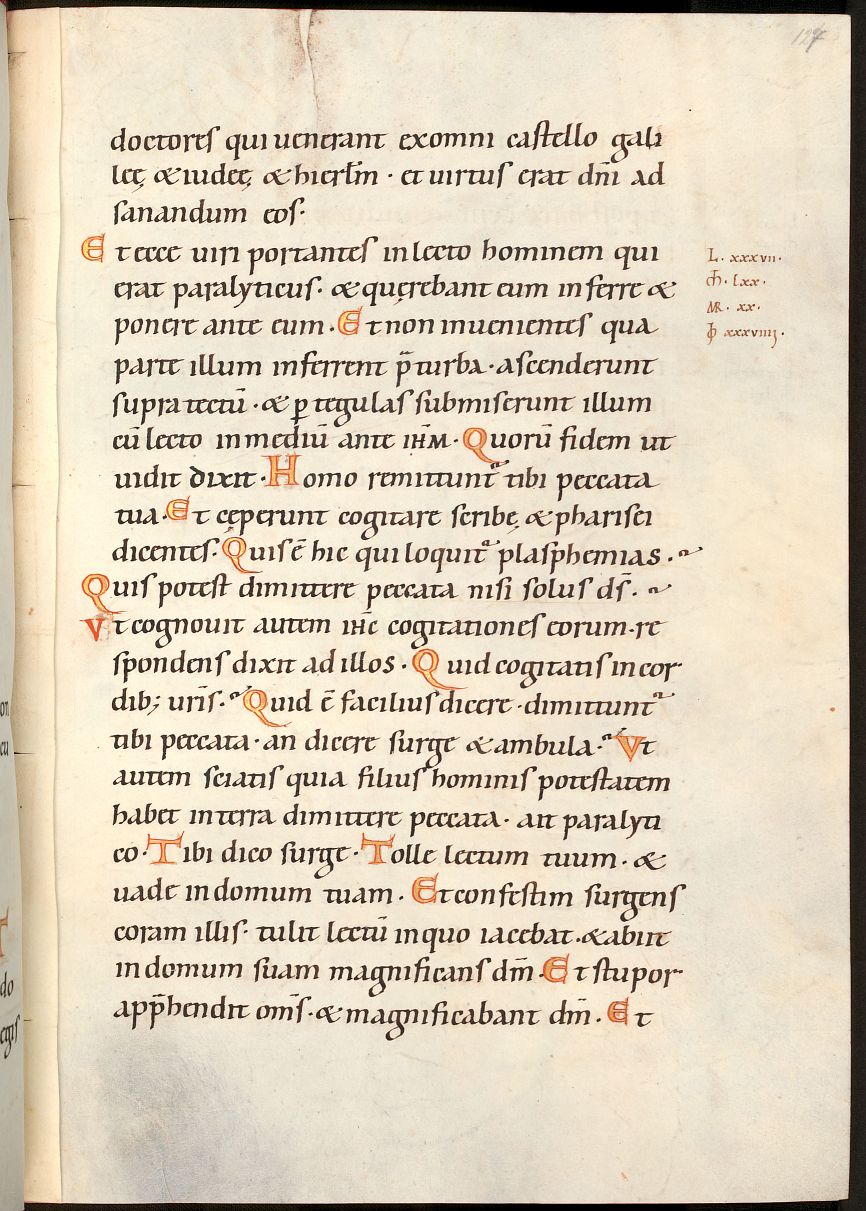 127
doctores qui uenerant exomni castello gali
leę &iudeę &hierłm · et uirtus erat dn̄i ad
sanandum eos·
Et ecce uiri portantes inlecto hominem qui
erat paralyticus· &querebant eum inferre &
ponere ante eum · Et non inuenientes qua
parte illum inferrent p̄ turba · ascenderunt
supra tectū · & ꝑ tegulas submiserunt illum
cū lecto inmediū ante ih̄m · Quorū fidem ut
uidit dixit · Homo remittunt᷑ tibi peccata
tua · Et cęperunt cogitare scribę &pharisei
dicentes· Quis ē hic qui loquit᷑ plasphemias ·
Quis potest dimittere peccata nisi solus ds̄ ·
Vt cognouit autem ih̄c cogitationes eorum · re
spondens dixit ad illos · Quid cogitatis incor
dib; uris̄ · Quid ē facilius dicere · dimittunt᷑
tibi peccata · an dicere surge &ambula · Vt
autem sciatis quia filius hominis potestatem
habet interra dimittere peccata · ait paralyti
co · Tibi dico surge · Tolle lectum tuum · &
uade indomum tuam · Et confestim surgens
coram illis · tulit lectū inquo iacebat · &abiit
indomum suam magnificans dm̄ · Et stupor
app̄hendit oms̄ · &magnificabant dm̄ · Et
L · xxxvii ·
m̄ · lxx ·
MR · xx ·
xxxviiij ·